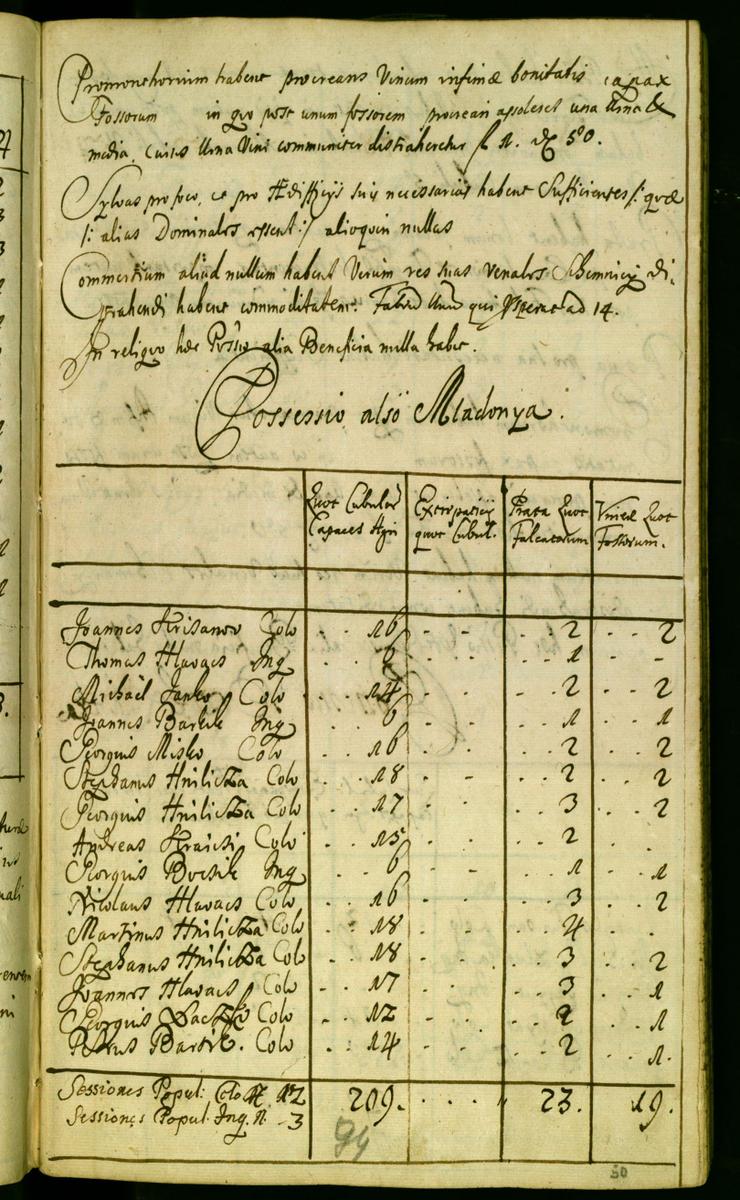 Promonthorium habent procreans Vinum infimæ bonitatis capax
Fossorum in quo post unum fossorem procreari assolet una Urna &
media, Cuius Urna Vini communiter distraheretur f 1. 50.
Sylvas pro foco, et pro Ædificijs suis necessarias habent Sufficientes /: quæ
/: alias Dominales essent :/ alioquin nullas
Commertium aliud nullum habent Verum res suas venales Schemnicij di-
strahendi habent commoditatem. qui ad 14.
In reliquo hæc Possio alia Beneficia nulla habet.
Possessio alsö Mladonya.
Quot Cubulor Capaces Agri
Extirpaticij quot Cubul.
Prata Quot Falcatorum
Vineæ Quot Fossorum.
Joannes Krisanov Colo . . 16 . . . . 2 . . 2
Thomas Hlavacs Inq . . 6 . . . . 1 . . -
Michael Janko Colo . . 14 . . . . 2 . . 2
Joannes Bartik Inq . . 6 . . . . 1 . . 1
Georgius Misko Colo . . 16 . . . . 2 . . 2
Stephanus Hnilicza Colo . . 18 . . . . 2 . . 2
Georgius Hnilicza Colo . . 17 . . . . 3 . . 2
Andreas Kraicsi Colo . . 15 . . . . 2 . .
Georgius Bocsik Inq . . 6 . . . . 1 . . 1
Nicolaus Hlavacs Colo . . 16 . . . . 3 . . 2
Martinus Hnilicza Colo . . 18 . . . . 4 . .
Stephanus Hnilicza Colo . . 18 . . . . 3 . . 2
Joannes Hlavacs Colo . . 17 . . . . 3 . . 1
Georgius Colo . . 12 . . . . 2 . . 1
Petrus Bartik. Colo . . 14 . . . . 2 . . 1.
Sessiones Popul: Colo N 12 209. . . . 23. 19.
Sessiones Popul. Inq. N. -3
94
50